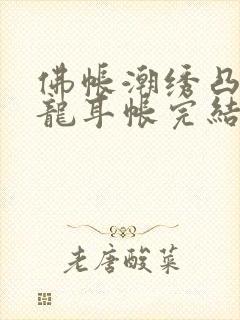 佛帐潮绣凸
龍耳帐完結
老唐酸菜